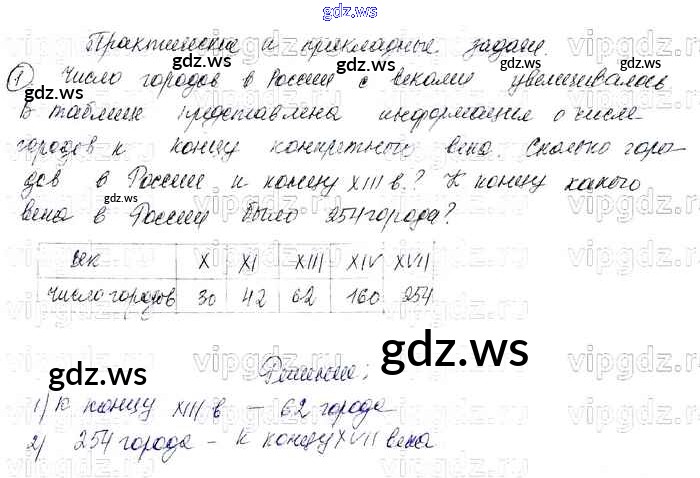 gdz.ws
Практические и прикладные задачи.
1 Число городов в России с веками увеличивалось
В таблице представлена информация о числе
городов к концу конкретного века. Сколько горо
дов в России к концу XIII в.? К концу какого
века в России было 254 города?
век X XI XIII XIV XVII
Число городов 30 42 62 160 254
Решение:
1) К концу XIII в – 62 города
2) 254 города – к концу XVII века
gdz.ws
gdz.ws
gdz.ws
gdz.ws
gdz.ws
gdz.ws
gdz.ws
vipgdz.ru